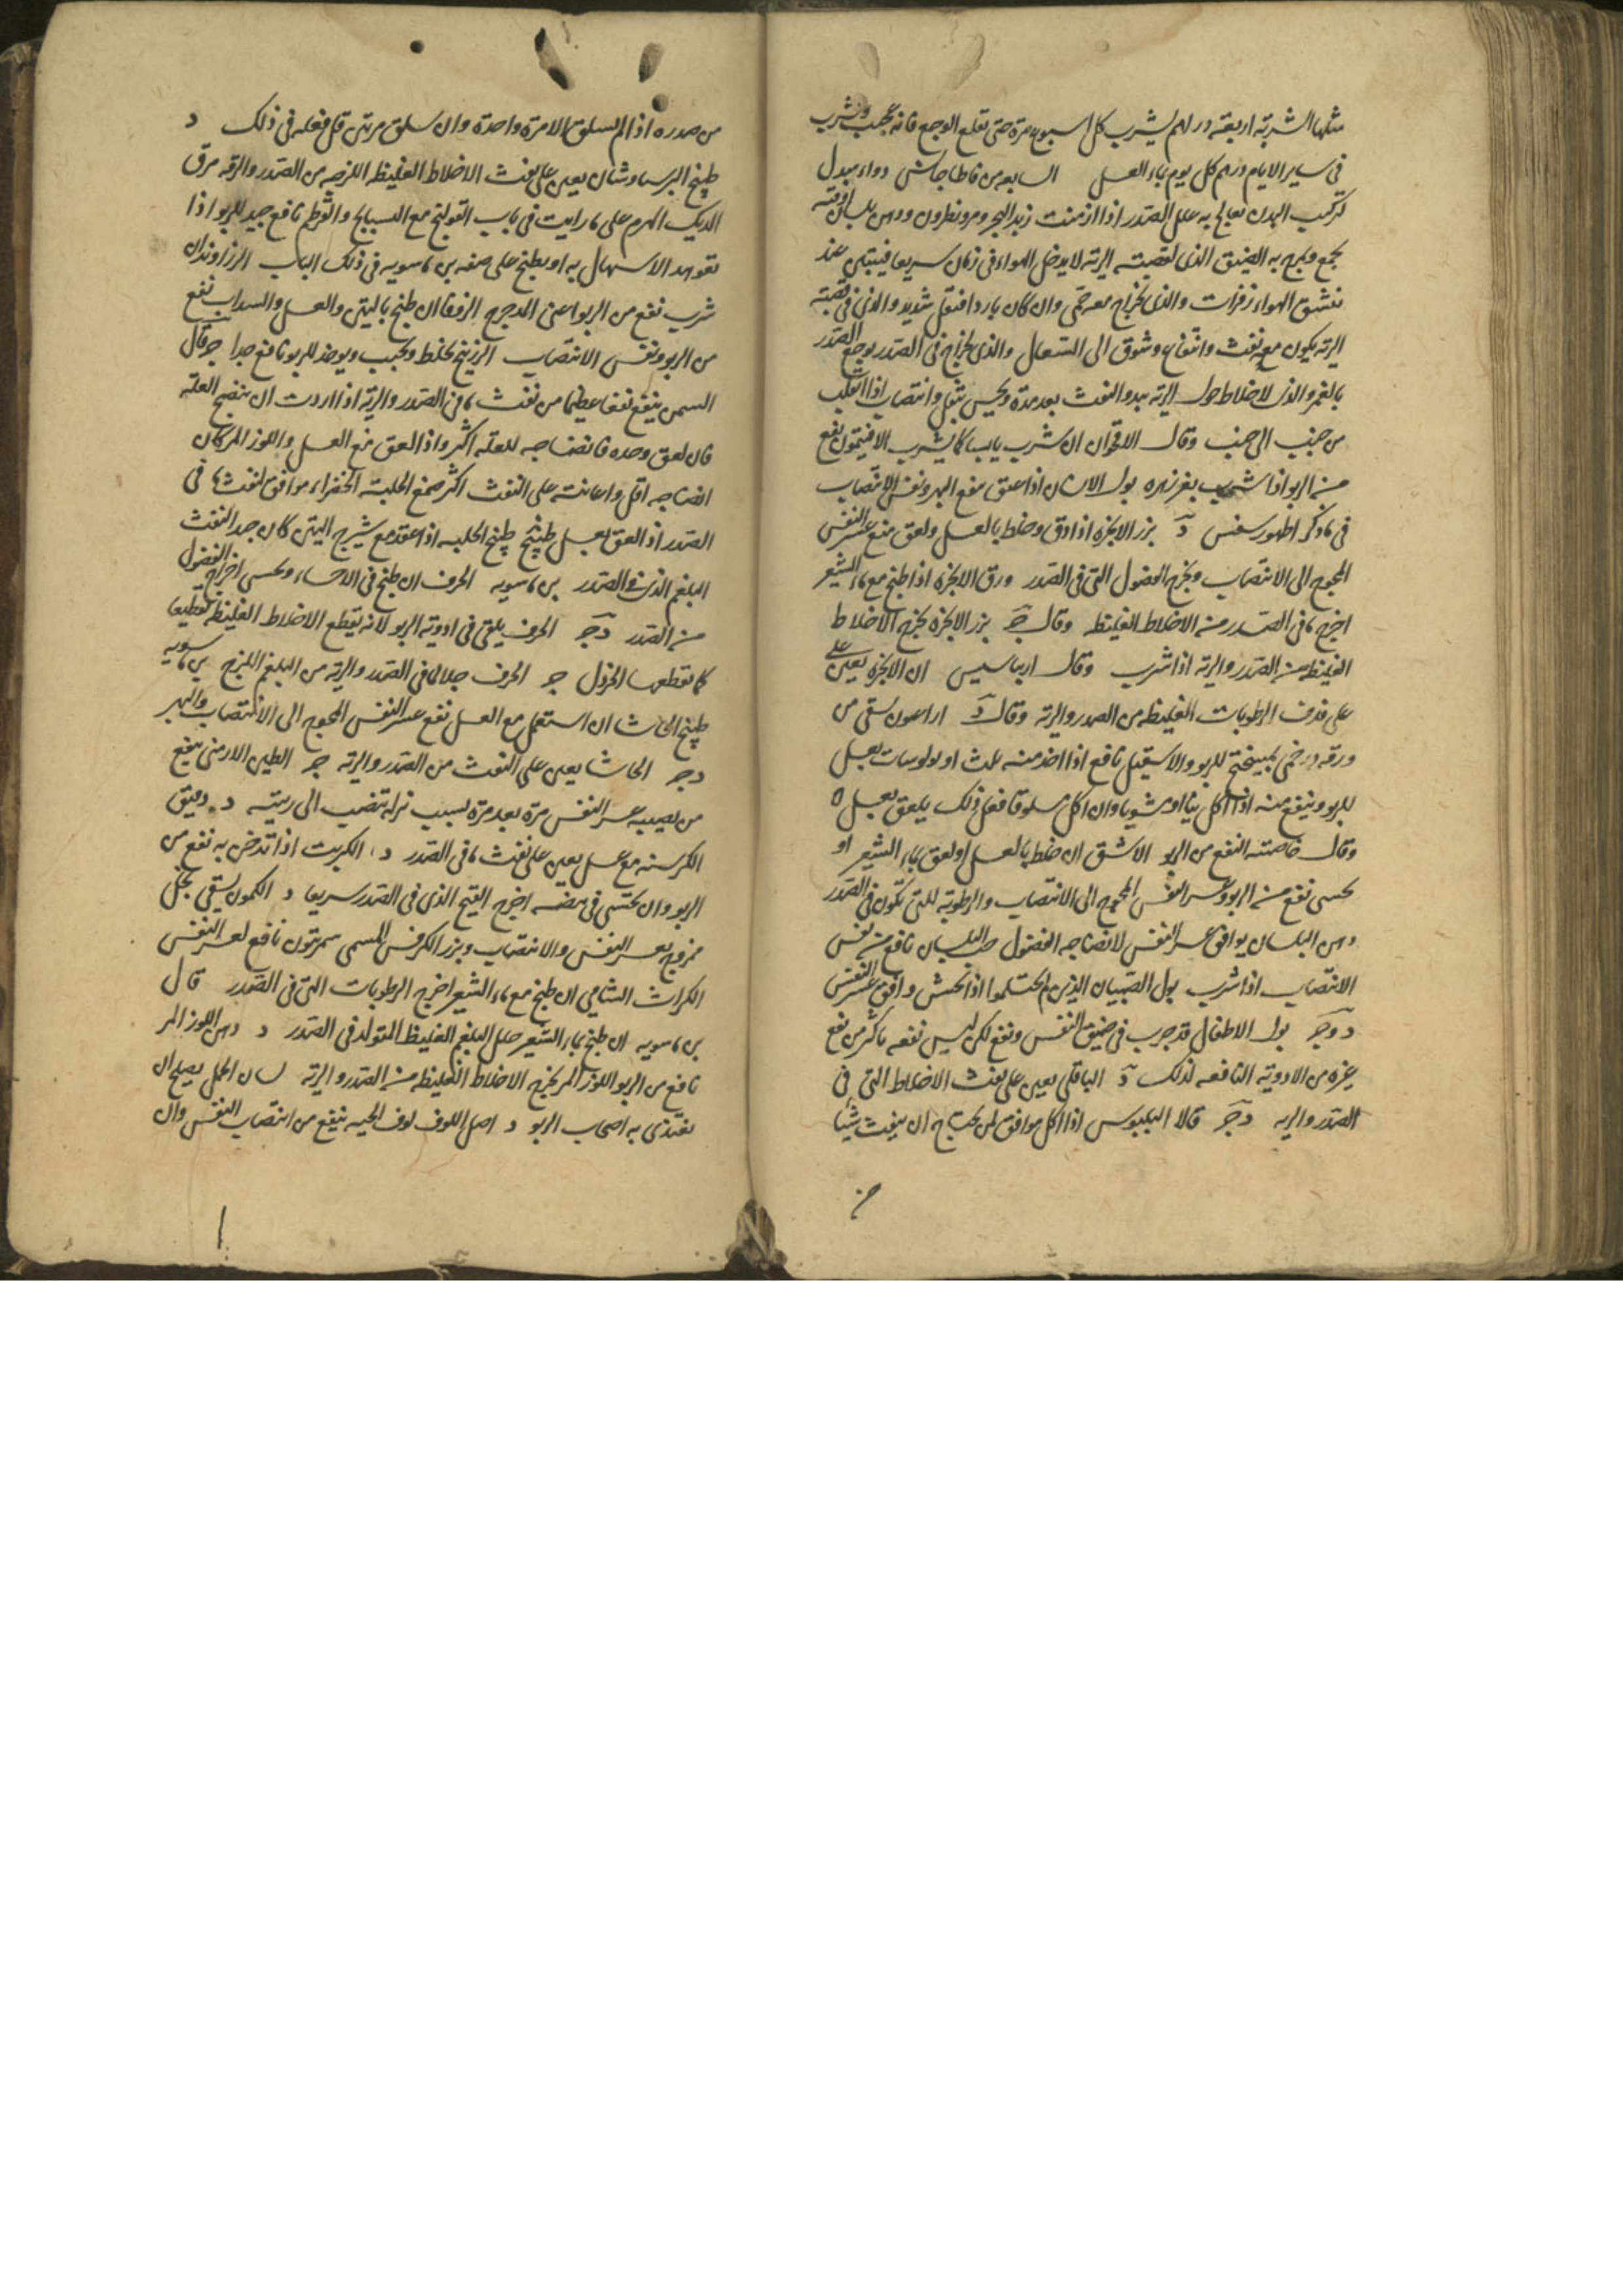 مثلها الشربة اربعة دراهم يشرب كل اسبوع مرة حتى تقلع الوجع فانه عجيب ويشرب
فى ساير الايام درهم كل يوم بماء العسل السابعه من قاطاجانس دواء مبدل
تركيب البدن تعالج به علل الصدر اذا ازمنت زبد البحر ومر ونطرون ودهن بلسان اوقية
يجمع ويمرخ به الضيق الذى لقصبته الرية لا يدخل الهواء فى زمان سريعا فيتبين عند
تنشق الهواء زفرات والذى لخراج معه حمى وان كان باردا فثقل شديد والذى فى قصبة
الرية يكون معه نفث وانتفاع وشوق الى السعال والذى لخراج فى الصدر يوجع الصدر
بالغمز والذى لاخلاط حول الرية يبدو النفث بعد مدة ويحس بثقل وانتصاب اذا انقلب
من جنب الى جنب وقال الاقحوان ان شرب يابسا كما يشرب الافيتمون نفع
من الربو اذا شرب بغير زهره بول الانسان اذا عتق ينفع البهر ونفس الانتصاب
فى ما ذكر اطهورسفس د بزر الانجرة اذا دق وخلط بالعسل ولعق منع عسر النفس
المحوج الى الانتصاب ويخرج الفضول التى فى الصدر ورق الانجرة اذا طبخ مع ماء الشعير
اخرج ما فى الصدر من الاخلاط الغليظه وقال ج بزر الانجرة يخرج الاخلاط
الغليظه من الصدر والرية اذا شرب وقال اريباسيس ان الانجرة يعين على
على قذف الرطوبات الغليظه من الصدر والرية وقال د اراعون يسقى من
ورقه درخمى بميبختج للربو والاسقيل نافع اذا اخذ منه ثلث اوبولوسات بعسل
للربو وينفع منه اذا اكل نيا او مشويا وان اكل مسلوقا فعل ذلك يلعق بعسل ه
وقال خاصته النفع من الربو الاشق ان خلط بالعسل او لعق بماء الشعير او
تحسى نفع من الربو وعسر النفس المحوج الى الانتصاب والرطوبة التى تكون فى الصدر
دهن البلسان يوافق عسر النفس لانضاجه الفضول حب البلسان نافع من نفس
الانتصاب اذا شرب بول الصبيان الذين لم يحتلموا اذا تحسى وافق عسر النفس
د وج بول الاطفال قد جرب فى ضيق النفس ونفع لكن ليس نفعه باكثر من نفع
غيره من الادوية النافعه لذلك د الباقلى يعين على نفث الاخلاط التى فى
الصدر والرية د ج قالا البلبوس اذا اكل موافق لمن يحتاج ان ينفث شيئا
من
من صدره اذا لم يسلق الا مرة واحدة وان سلق مرتين قل فعله فى ذلك د
طبيخ البرسياوشان يعين على نفث الاخلاط الغليظه اللزجه من الصدر والرية مرق
الديك الهرم على ما رايت فى باب القولنج مع البسبايج والقرطم نافع جيد للربو اذا
تعوهد الاسهال به او يطبخ على صفه بن ماسويه فى ذلك الباب الزراوندان
شرب نفع من الربو اعنى المدحرج الزوفا ان طبخ بالتين والعسل والسداب نفع
من الربو ونفس الانتصاب الزرنيخ يخلط ويحبب ويوخذ للربو نافع جدا ج وقال
السمن ينفع نفعا عظيما من نفث ما فى الصدر والرية اذا اردت ان ينضج العلة
فان لعق وحده فانضاجه للعلة اكثر واذا لعق مع العسل واللوز المر كان
انضاجه اقل واعانته على النفث اكثر صمغ الحلبة الخضراء موافق لنفث ما فى
الصدر اذا لعق بعسل طبيخ الحلبه اذا عقد مع شيرج التين كان جيد النفث
البلغم الذى فى الصدر بن ماسويه الحرف ان طبخ فى الاحساء وتحسى اخرج الفضول
من الصدر د ج الحرف يلقى فى ادوية الربو لانه يقطع الاخلاط الغليظه تقطيعا
كما يقطعها الخردل ج الحرف جلا لما فى الصدر والرية من البلغم اللزج بن ماسويه
طبيخ الحاشا ان استعمل مع العسل نفع عسر النفس المحوج الى الانتصاب والبهر
د ج الحاشا يعين على النفث من الصدر والرية ج الطين الارمنى ينفع
من يصيبه عسر النفس مرة بعد مرة بسبب نزلة تنصب الى ريته د دقيق
الكرسنه مع عسل يعين على نفث ما فى الصدر د الكبريت اذا تدخن به نفع من
الربو وان تحسى فى بيضه اخرج القيح الذى فى الصدر سريعا د الكمون يسقى بخل
ممزوج لعسر النفس والانتصاب وبزر الكرفس المسمى سمرنون نافع لعسر النفس
الكراث الشامى ان طبخ مع ماء الشعير اخرج الرطوبات التى فى الصدر قال
بن ماسويه ان طبخ بماء الشعير حلل البلغم الغليظ المتولد فى الصدر د دهن اللوز المر
نافع من الربو اللوز المر يخرج الاخلاط الغليظه من الصدر والرية لسان الحمل يصلح ان
يغتذى به اصحاب الربو د اصل اللوف لوف الحيه ينفع من انتصاب النفس وان